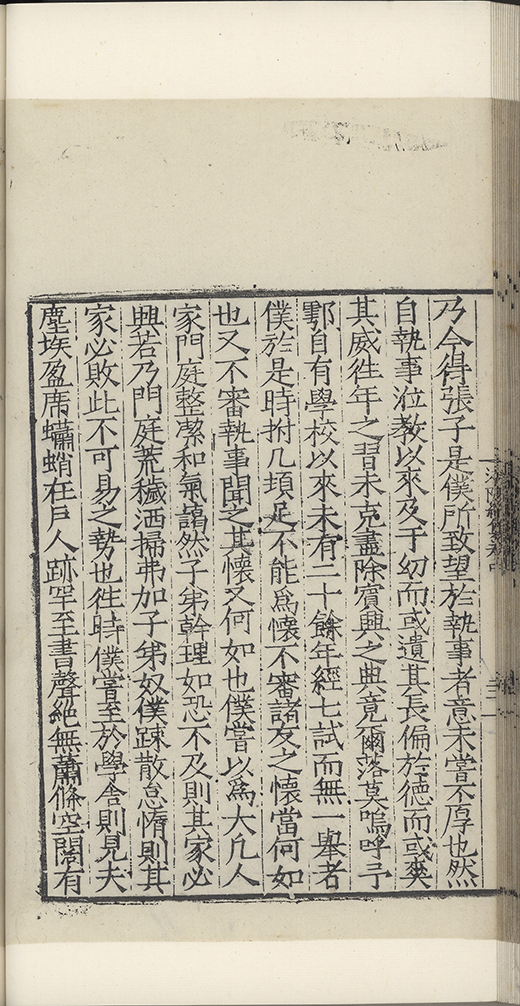 乃今得張子是僕所致望於執事者意未嘗不厚也然
自執事涖教以來及于㓜而或遺其長偏於德而或爽
其威徃年之習未克盡除賓興之典竟爾落莫嗚呼予
鄠自有學校以來未有二十餘年經七試而無一舉者
僕於是時拊几頓足不能爲懷不審諸友之懷當何如
也又不審執事聞之其懷又何如也僕嘗以爲大凢人
家門庭整潔和氣藹然子弟幹理如恐不及則其家必
興若乃門庭荒穢洒掃弗加子弟奴僕踈散怠惰則其
家必敗此不可易之勢也徃時僕嘗至於學舎則見夫
塵埃盈席蠨蛸在戶人跡罕至書聲絶無蕭條空闊有